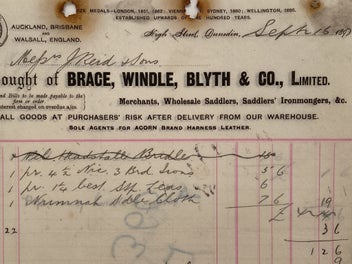 ZE MEDALS—LONDON, 1851, 1862; VIENNA; SYDNEY, 1880; WELLINGTON, 1885.
ESTABLISHED UPWARDS OF HUNDRED YEARS.
AUCKLAND, BRISBANE
AND
WALSALL, ENGLAND.
High Street, Dunedin, Sept 16 189
Messrs J Reid & Sons
ought of BRACE, WINDLE, BLYTH & CO., LIMITED.
and Bills to be made payable to the
firm or order
interest charged on overdue a/cs.
Merchants, Wholesale Saddlers, Saddlers' Ironmongers, &c.
ALL GOODS AT PURCHASERS' RISK AFTER DELIVERY FROM OUR WAREHOUSE.
SOLE AGENTS FOR ACORN BRAND HARNESS LEATHER.
Bridle
1 pr 4½ 3 Brd Irons 5 6
1 pr 1¼ best 6
1 Numnah Sdle Cloth 7 6 19
£
22 3 6
1 2 6
9